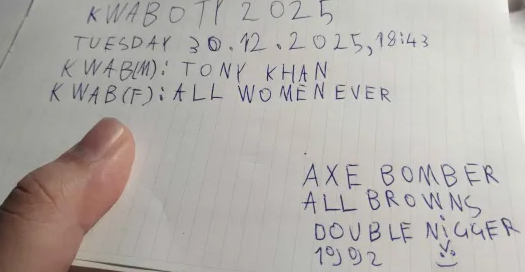 KWABOTY 2025
TUESDAY 30.12.2025, 18:43
KWAB(M): TONY KHAN
KWAB(F): ALL WOMEN EVER
AXE BOMBER
ALL BROWNS
DOUBLE NIGGER
1992